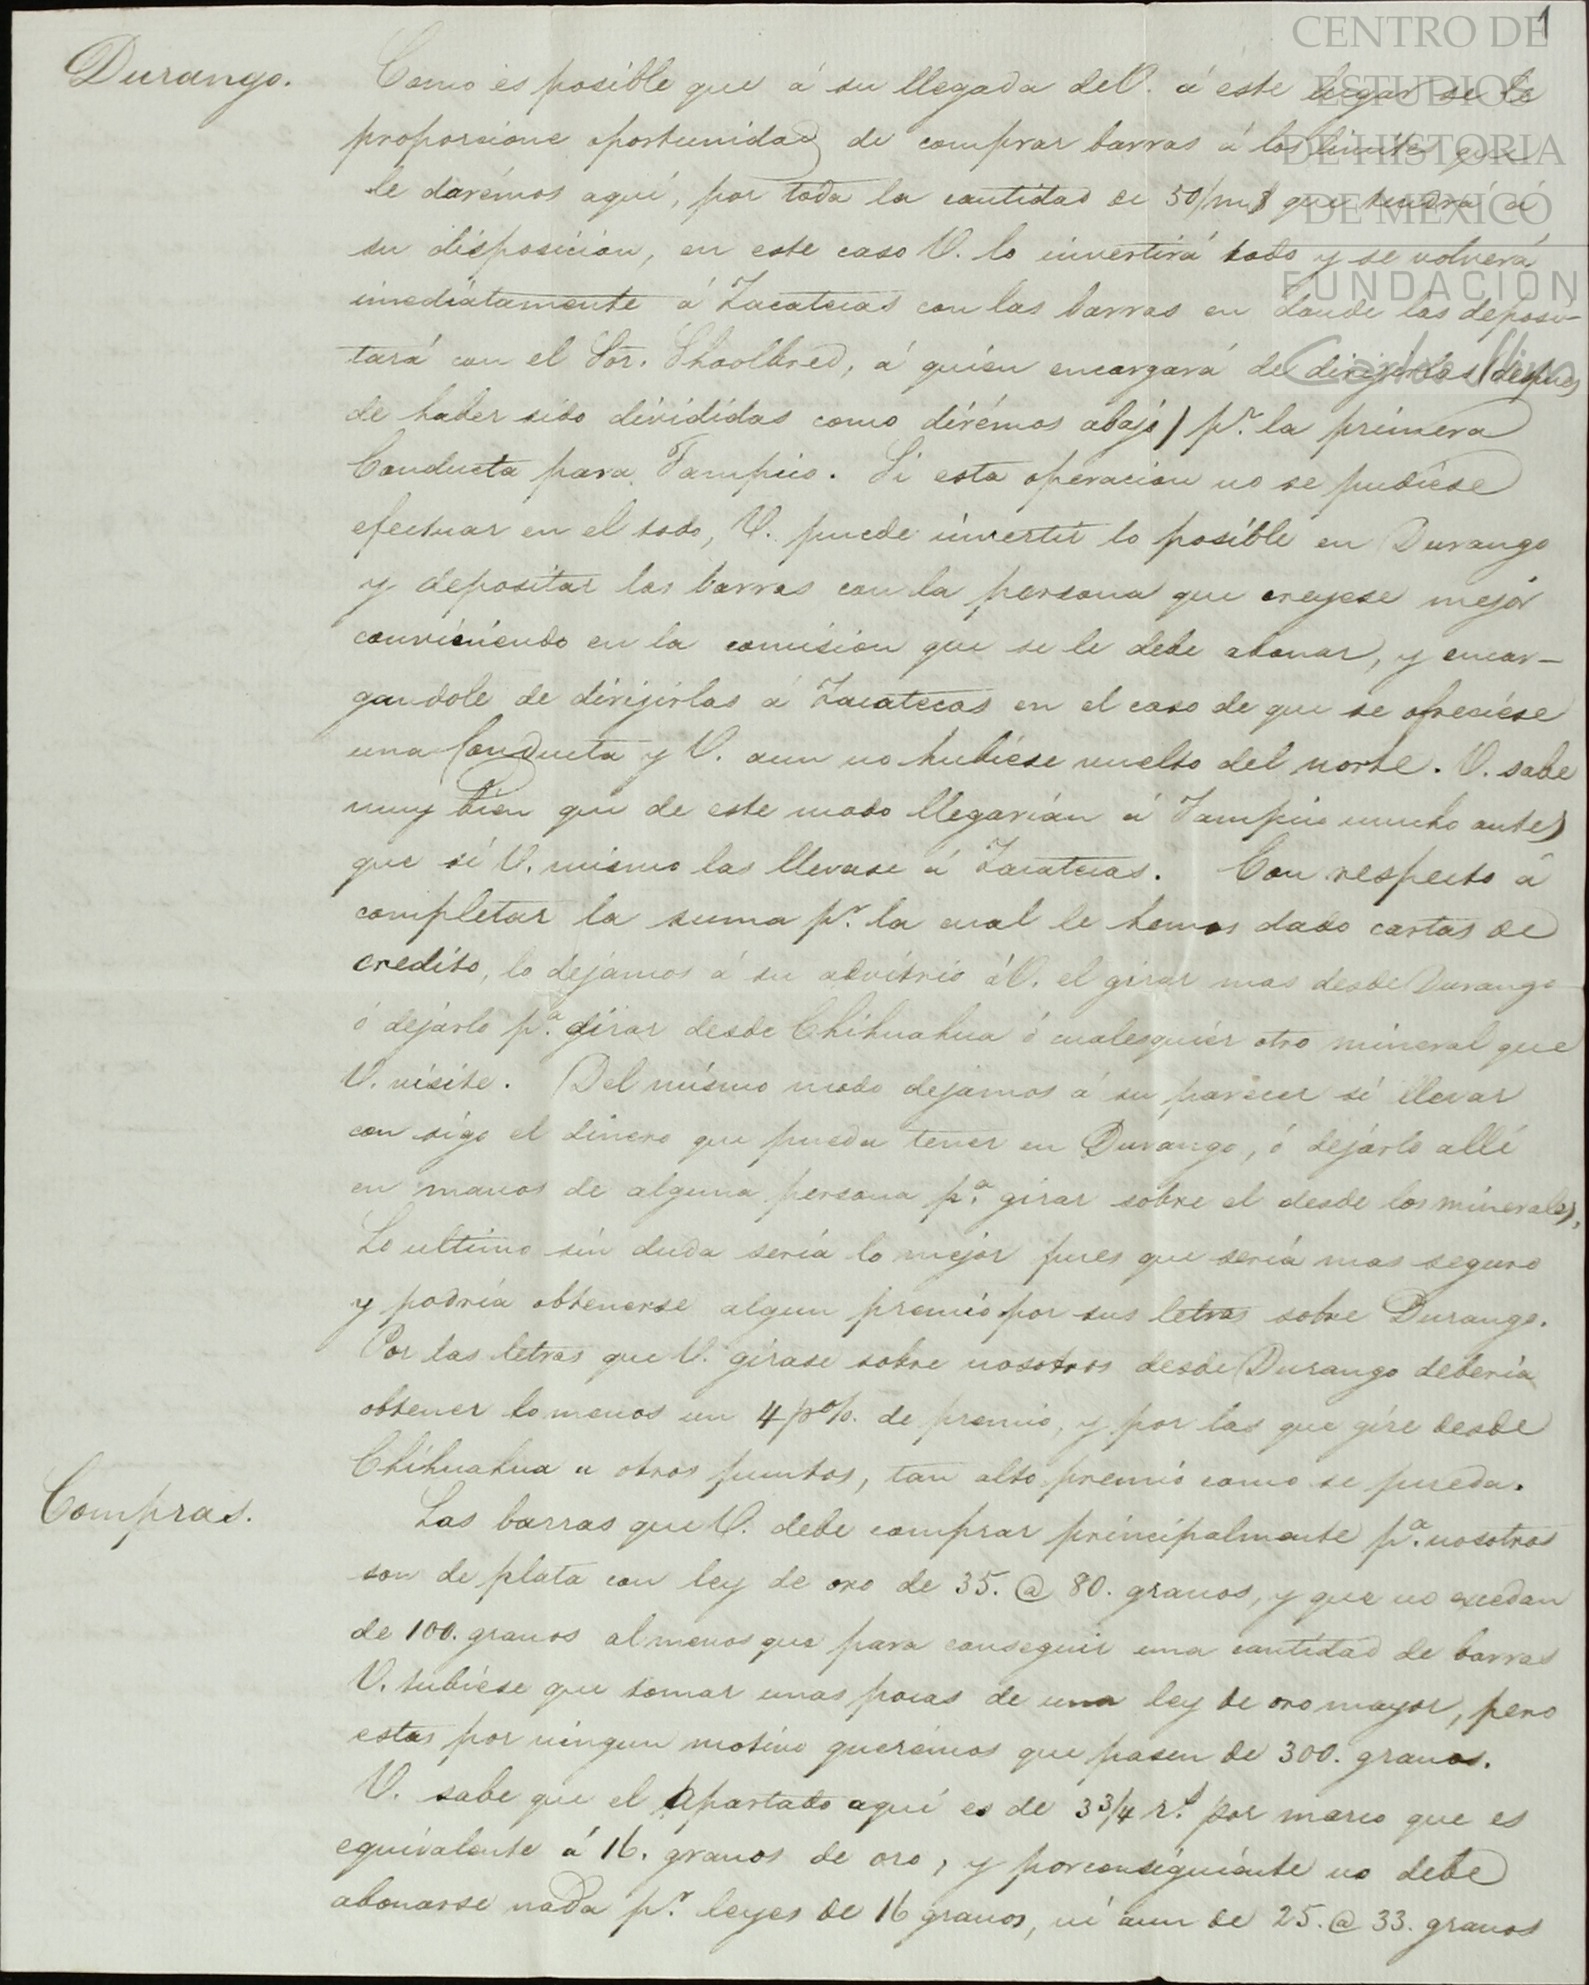 1
CENTRO DE
ESTUDIOS
DE HISTORIA
DE MÉXICO
FUNDACIÓN
Carlos Slim
Durango.
Como es posible que á su llegada de V. á este lugar se le
proporcione oportunidad de comprar barras á los limites que
le darémos aquí, por toda la cantidad de 50/m$ que tendrá á
su disposicion, en este caso V. lo invertirá todo y se volverá
imediatamente á Zacatecas con las barras en donde las deposi-
tará con el Sor. Shoolbred, á quien encargará de dirijirlas (despues
de haber sido divididas como dirémos abajo) pr. la primera
Conducta para Tampico. Si esta operacion no se pudiese
efectuar en el todo, V. puede invertir lo posible en Durango
y depositar las barras con la persona que creyese mejor
conviniendo en la comision que se le debe abonar, y encar-
gandole de dirijirlas á Zacatecas en el caso de que se ofreciese
una Conducta y V. aun no hubiese vuelto del norte. V. sabe
muy bien que de este modo llegarián á Tampico mucho antes
que si V. mismo las llevase á Zacatecas. Con respecto á
completar la suma pr. la cual le hemos dado cartas de
credito, lo dejamos á su advitrio á V. el girar mas desde Durango
ó dejarlo pa. girar desde Chihuahua ó cualesquier otro mineral que
V. visite. Del mismo modo dejamos á su parecer si llevar
con sigo el dinero que pueda tener en Durango, ó dejarlo allí
en manos de alguna persona pa. girar sobre el desde los minerales,
Lo ultimo sin duda sería lo mejor pues que sería mas seguro
y podría obtenerse algun premio por sus letras sobre Durango.
Por las letras que V. girase sobre nosotros desde Durango debería
obtener lo menos un 4 p%. de premio, y por las que gire desde
Chihuahua u otros puntos, tan alto premio como se pueda.
Compras.
Las barras que V. debe comprar principalmente pa. nosotros
son de plata con ley de oro de 35. @ 80. granos, y que no excedan
de 100. granos al menos que para conseguir una cantidad de barras
V. tubiese que tomar unas pocas de una ley de oro mayor, pero
estas por ningun motivo querémos que pasen de 300. granos.
V. sabe que el Apartado aquí es de 3 3/4 rs. por marco que es
equivalente á 16. granos de oro, y por consiguiente no debe
abonarse nada pr. leyes de 16 granos, ni aun de 25. @ 33. granos